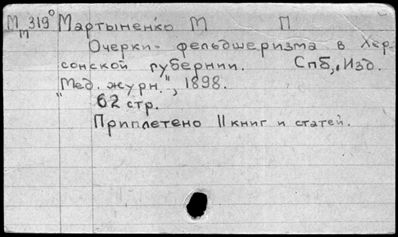 М 319° Мартыненко М П
м
Очерки фельдшеризма в Хер-
сонской губернии. Спб, Изд.
"Мед. журн.", 1898.
62 стр.
Приплетено 11 книг и статей.